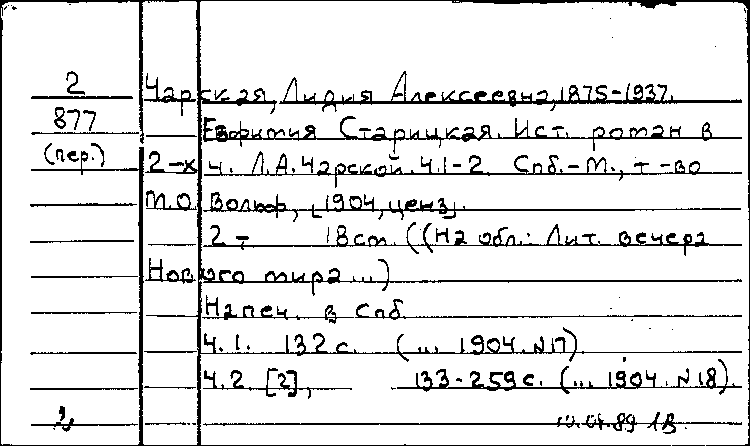 2 Чарская, Лидия Алексеевна, 1875-1937.
877 Евфимия Старицкая. Ист. роман в
(пер.) 2-х ч. Л.А. Чарской. Ч.1-2. Спб.-М., т-во
М.О. Вольф, [1904, ценз].
2 т 18 см. ((На обл.: Лит. вечера
Нового мира ...)
Напеч. в Спб.
Ч. 1. 132 с. (... 1904. №17).
Ч. 2 [2], 133-259 с. (... 1904. №18).
10.04.89